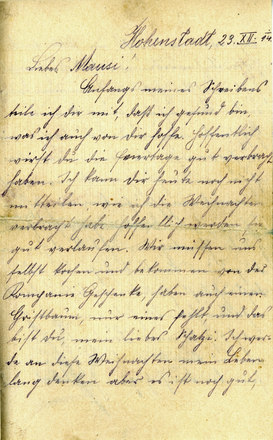 Hohenstadt, 23. XII. 14.
Liebes Mausi!
Anfangs meines Schreibens
teile ich dir mit, daß ich gesund bin,
was ich auch von dir hoffe. Hoffentlich
wirst du die Feiertage gut verbracht
haben. Ich kann dir heute noch nicht
mitteilen wie ich die Weihnachten
verbracht habe hoffentlich werden sie
gut verlaufen. Wir müssen uns
selbst kochen und bekommen von der
Kompanie Geschenke haben auch einen
Christbaum, nur eines fehlt, und das
bist du, mein liebes Schatzi. Ich werde
de an diese Weihnachten mein Leben
lang denken aber es ist noch gut,